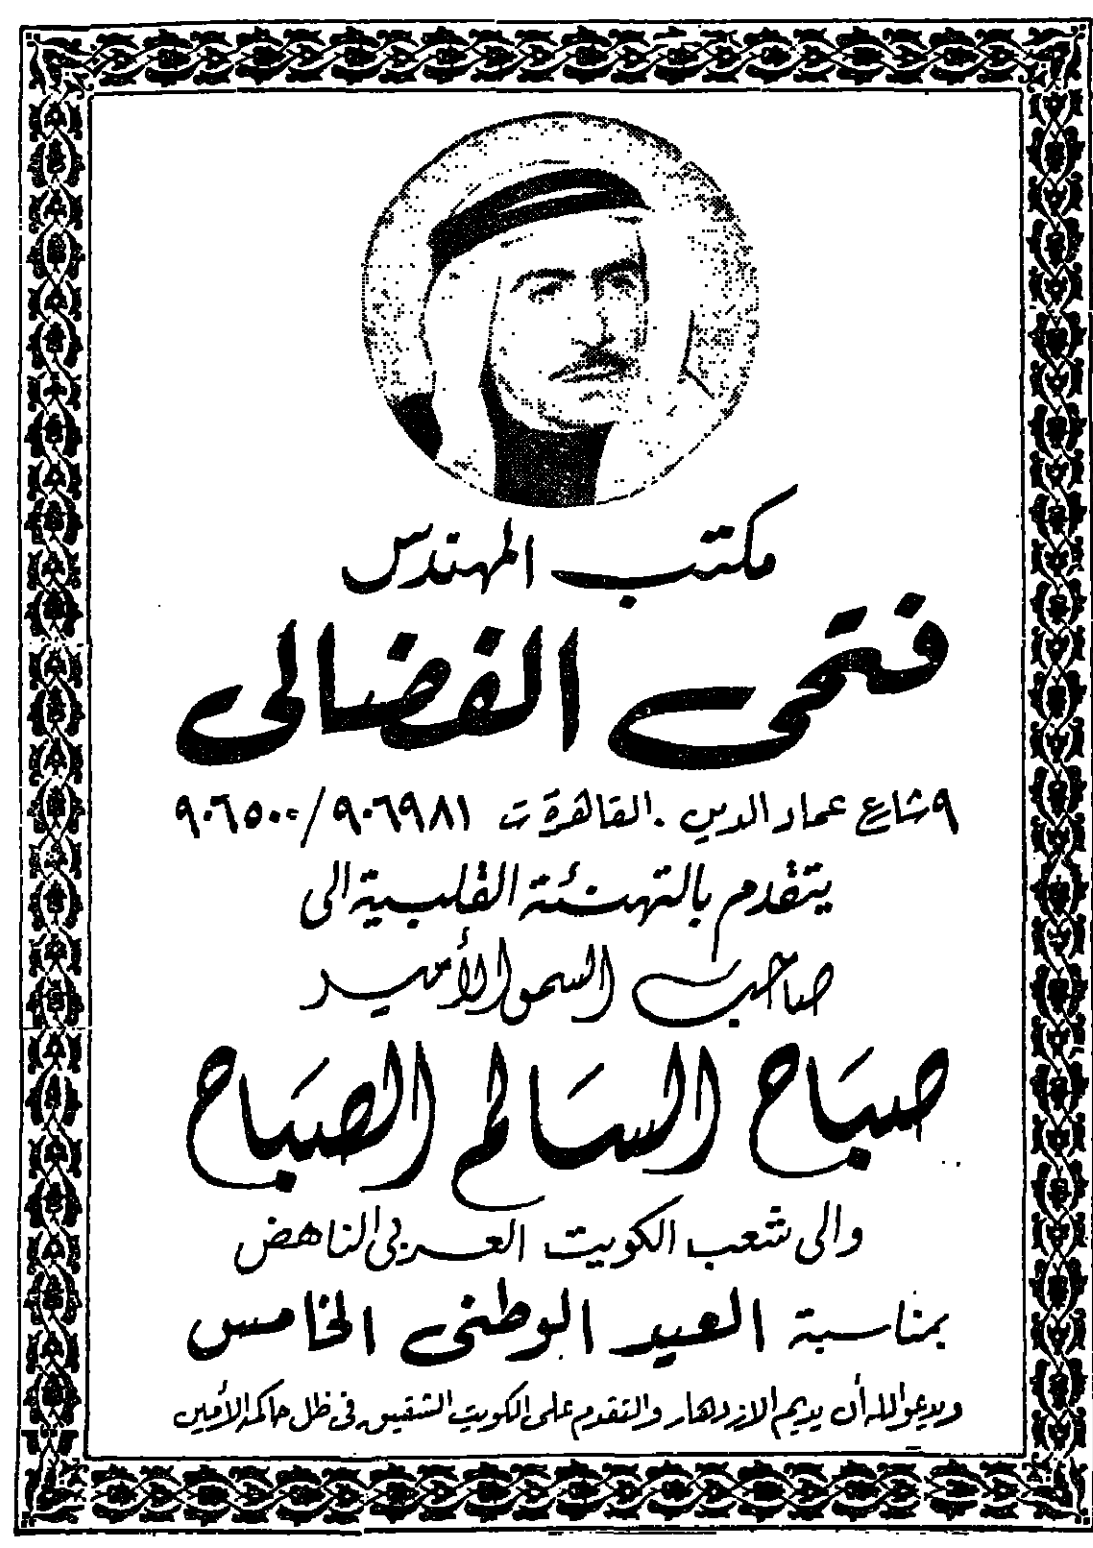 مكتب المهندس
فتحى الفضالى
٩ شارع عماد الدين . القاهرة ت ٩٠٦٩٨١ / ٩٠٦٥٠٠
يتقدم بالتهنئة القلبية الى
صاحب السمو الأمير
صباح السالم الصباح
والى شعب الكويت العربى الناهض
بمناسبة العيد الوطنى الخامس
ويدعو الله أن يديم الازدهار والتقدم على الكويت الشقيق فى ظل حاكمه الأمين